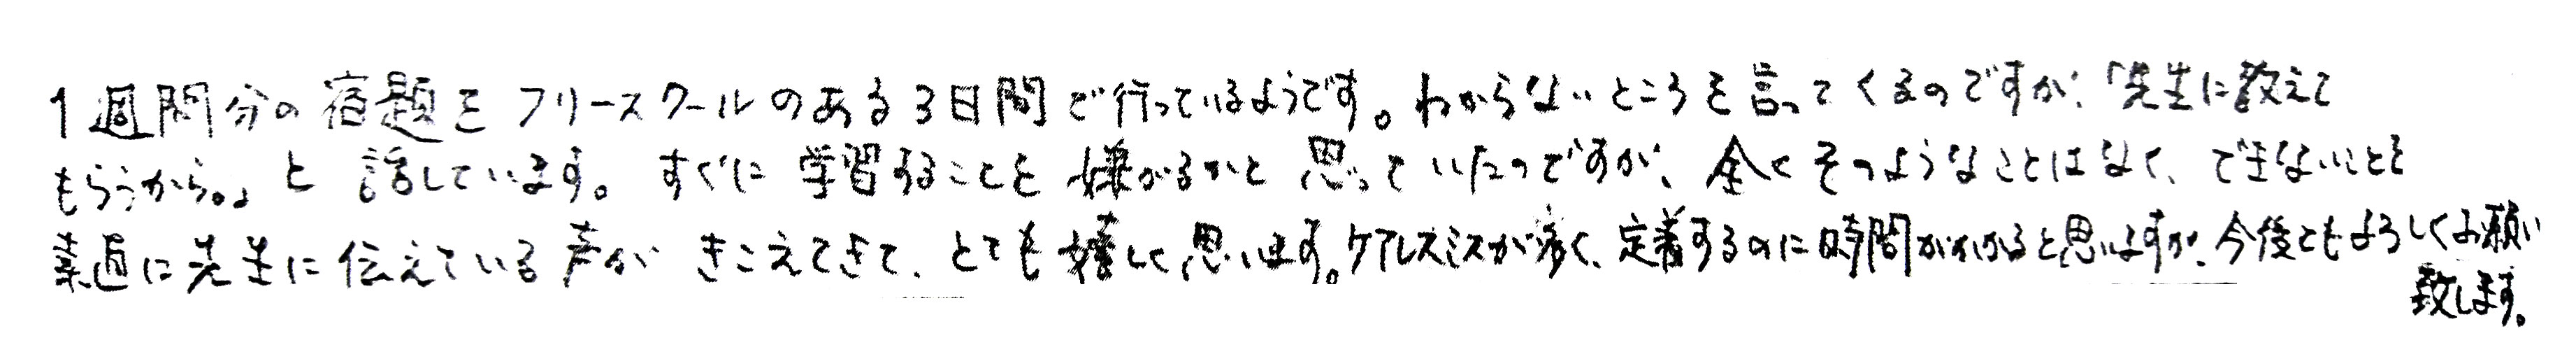 1週間分の宿題をフリースクールのある3日間で行っているようです。わからないところを言ってくるのですが、「先生に教えて
もらうから。」と話しています。すぐに学習することを嫌がるかと思っていたのですが、全くそのようなことはなく、できないことを
素直に先生に伝えている声がきこえてきて、とても嬉しく思います。ケアレスミスが多く、定着するのに時間がかかると思いますが、今後ともよろしくお願い
致します。